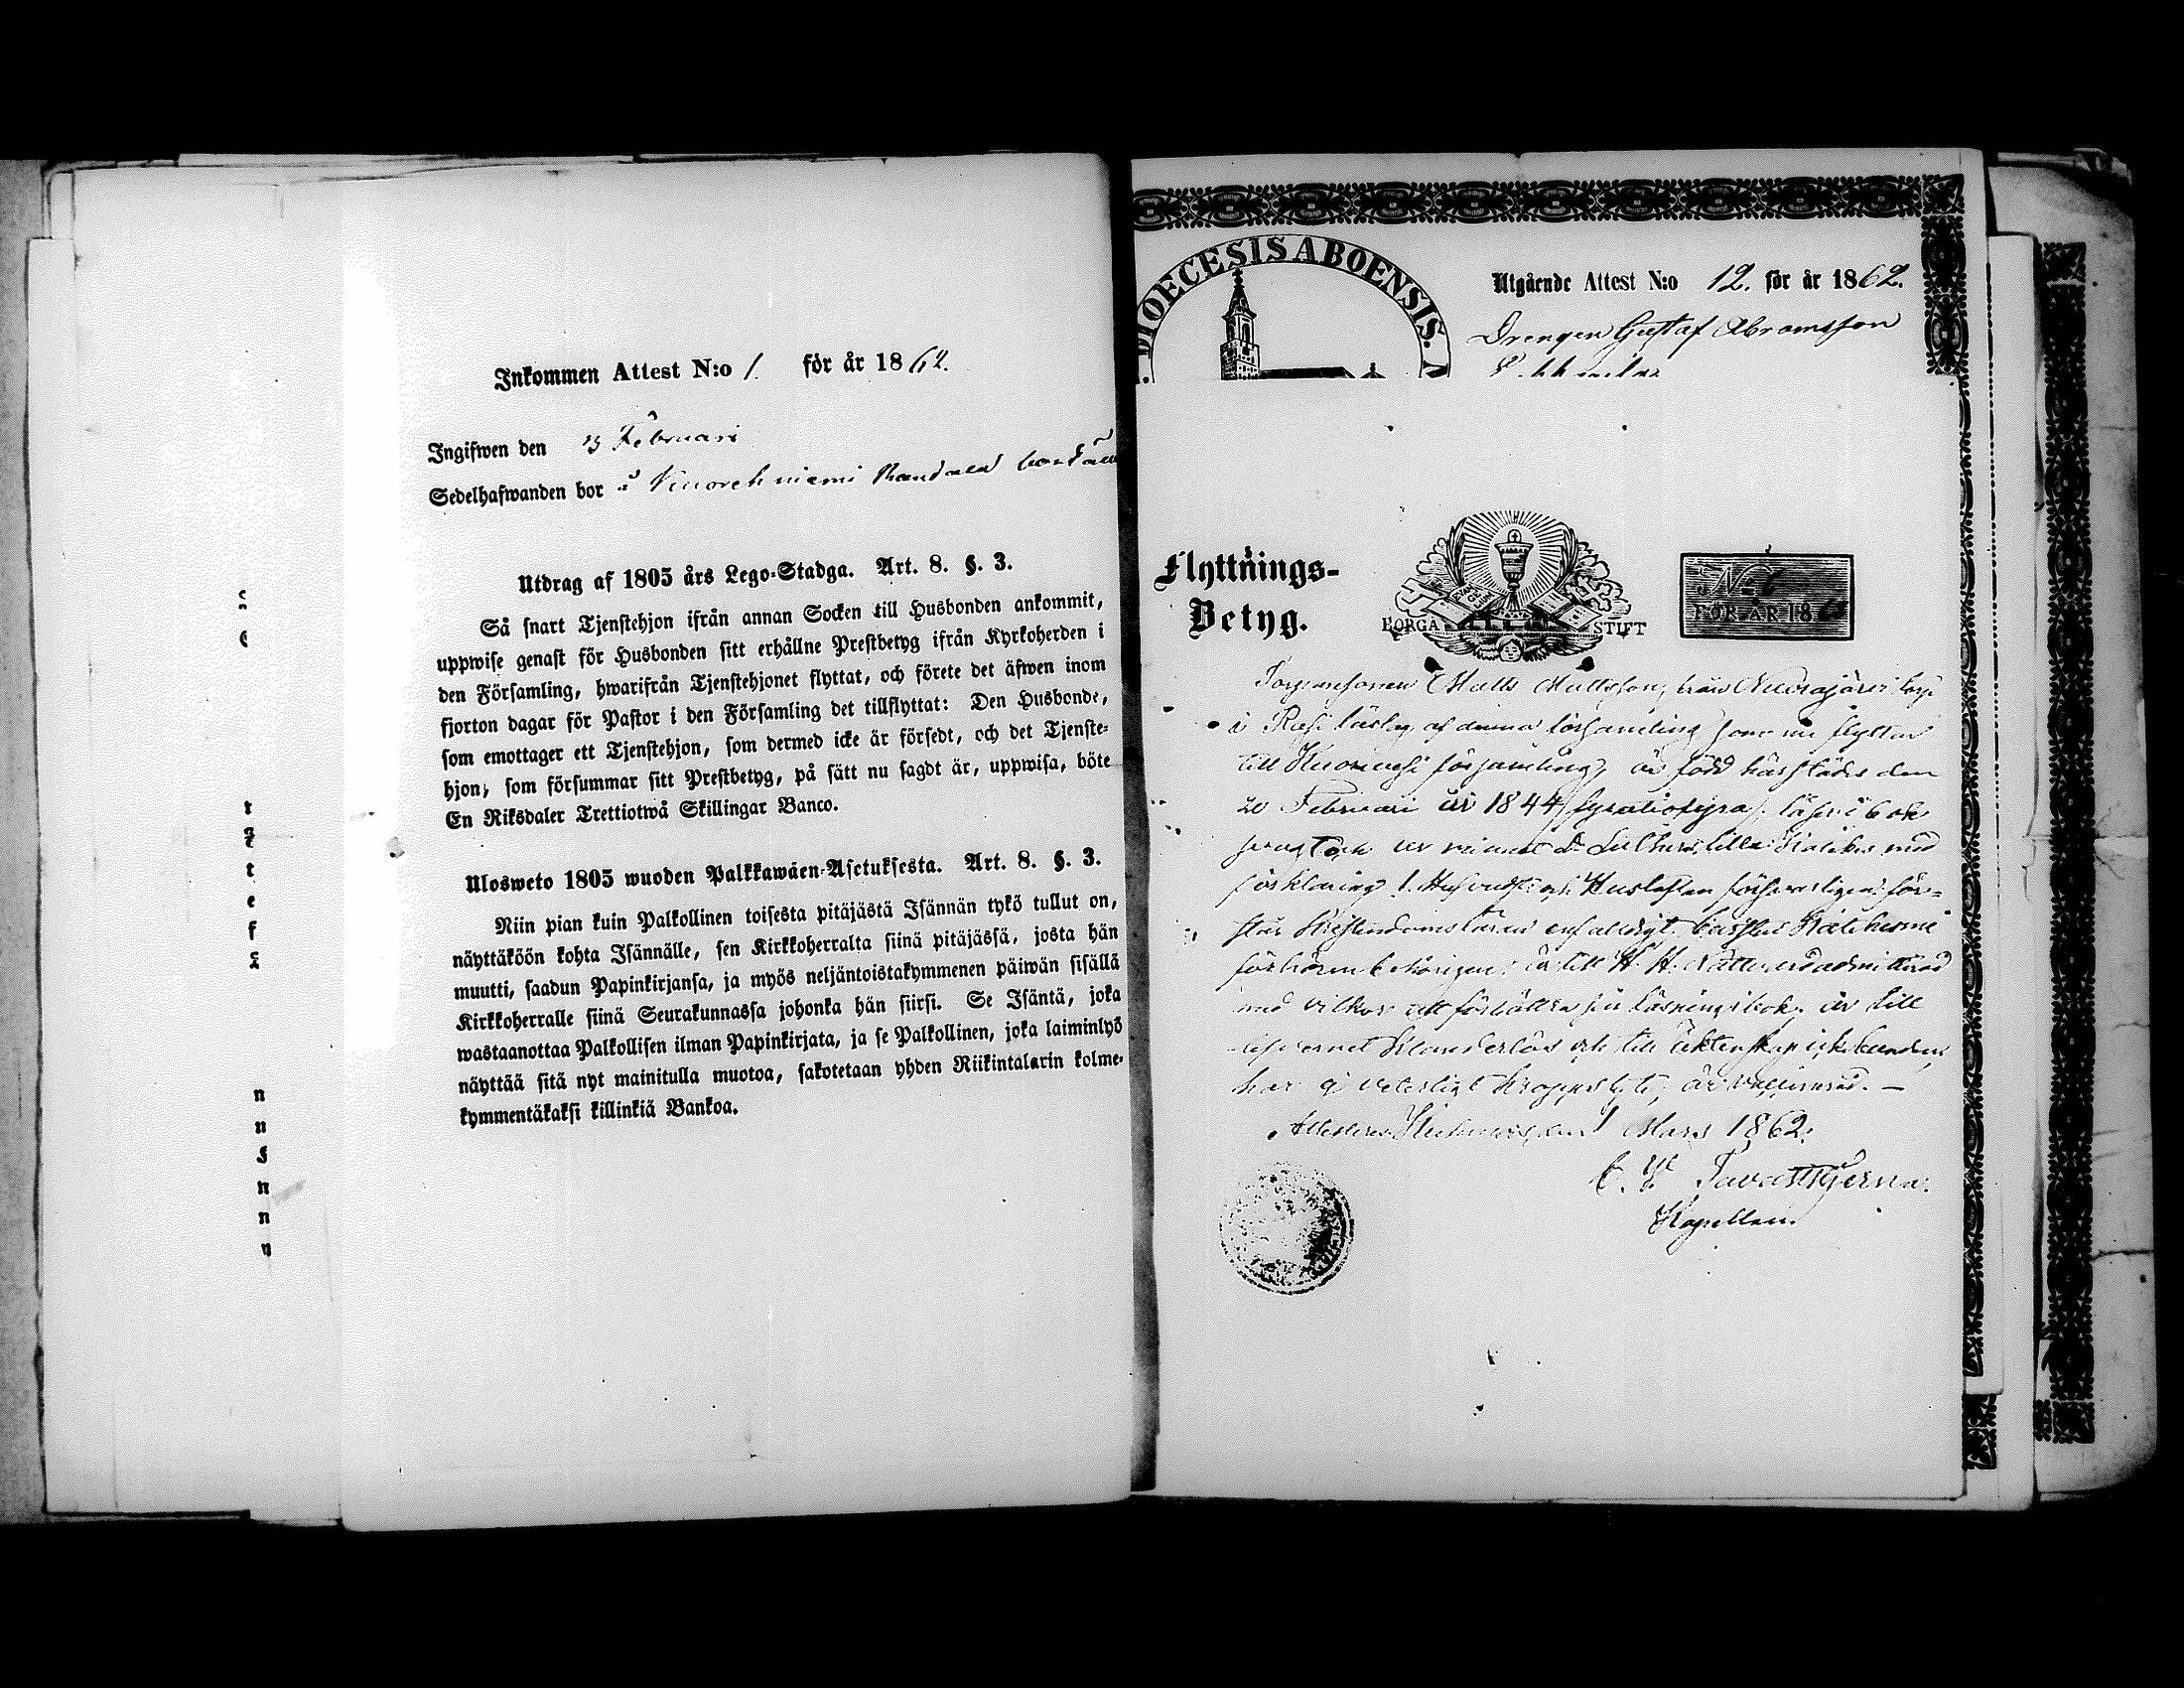 Inkommen Attest N:o 1. för år 1862.
Ingifwen den 23 Februari
Sedelhafwanden bor i
Utdrag af 1805 års Lego-Stadga. Art. 8. §. 3.
Så snart Tjenstehjon ifrån annan Socken till Husbonden ankommit,
uppwise genast för Husbonden sitt erhållne Prestbetyg ifrån Kyrkoherden i
den Församling, hwarifrån Tjenstehjonet flyttat, och förete det äfwen inom
fjorton dagar för Pastor i den Församling det tillflyttat: Den Husbonde,
som emottager ett Tjenstehjon, som dermed icke är försedt, och det Tjenste-
hjon, som försummar sitt Prestbetyg, på sätt nu sagdt är, uppwisa, böte
En Riksdaler Trettiotwå Skillingar Banco.
Ulosweto 1805 wuoden Palkkawäen-Asetuksesta. Art. 8. §. 3.
Niin pian kuin Palkollinen toisesta pitäjästä Isännän tykö tullut on,
näyttäköön kohta Isännälle, sen Kirkkoherralta siinä pitäjässä, josta hän
muutti, saadun Papinkirjansa, ja myös neljäntoistakymmenen päiwän sisällä
Kirkkoherralle siinä Seurakunnassa johonka hän siirsi. Se Isäntä, joka
wastaanottaa Palkollisen ilman Papinkirjata, ja se Palkollinen, joka laiminlyö
näyttää sitä nyt mainitulla muotoa, sakotetaan yhden Riikintalarin kolme-
kymmentäkaksi killinkiä Bankoa.
DIOECESIS ABOENSIS.
Utgående Attest N:o 12. för år 1862.
Drengen Gustaf Abramsson
Flyttnings-
Betyg.
EVANGELIUM
BORGÅ STIFT
No 1
FÖR ÅR 18
Matts Mattsson, från torp
i af denna församling som nu flyttar
till församling, är född härstädes den
20 Februari år 1844 /:fyratiofyra:/, läser i bok
ur minnet Dr Lutheri lilla Kateches med
förklaring, Hufvudst. och Hustaflan för-
står Kristendomsläran enfaldigt, bivistat Katekismi
förhören behörigen, är till H. H. Nattvard admitterad
med vilkor att förbättra sin läsning i bok, är till
lefvernet klanderlös och till äktenskap icke bunden,
har ej veterligt kroppslyte, är vaccinerad. —
Attesteras den 1 Mars 1862.
Tavaststjerna.
Kapellan.